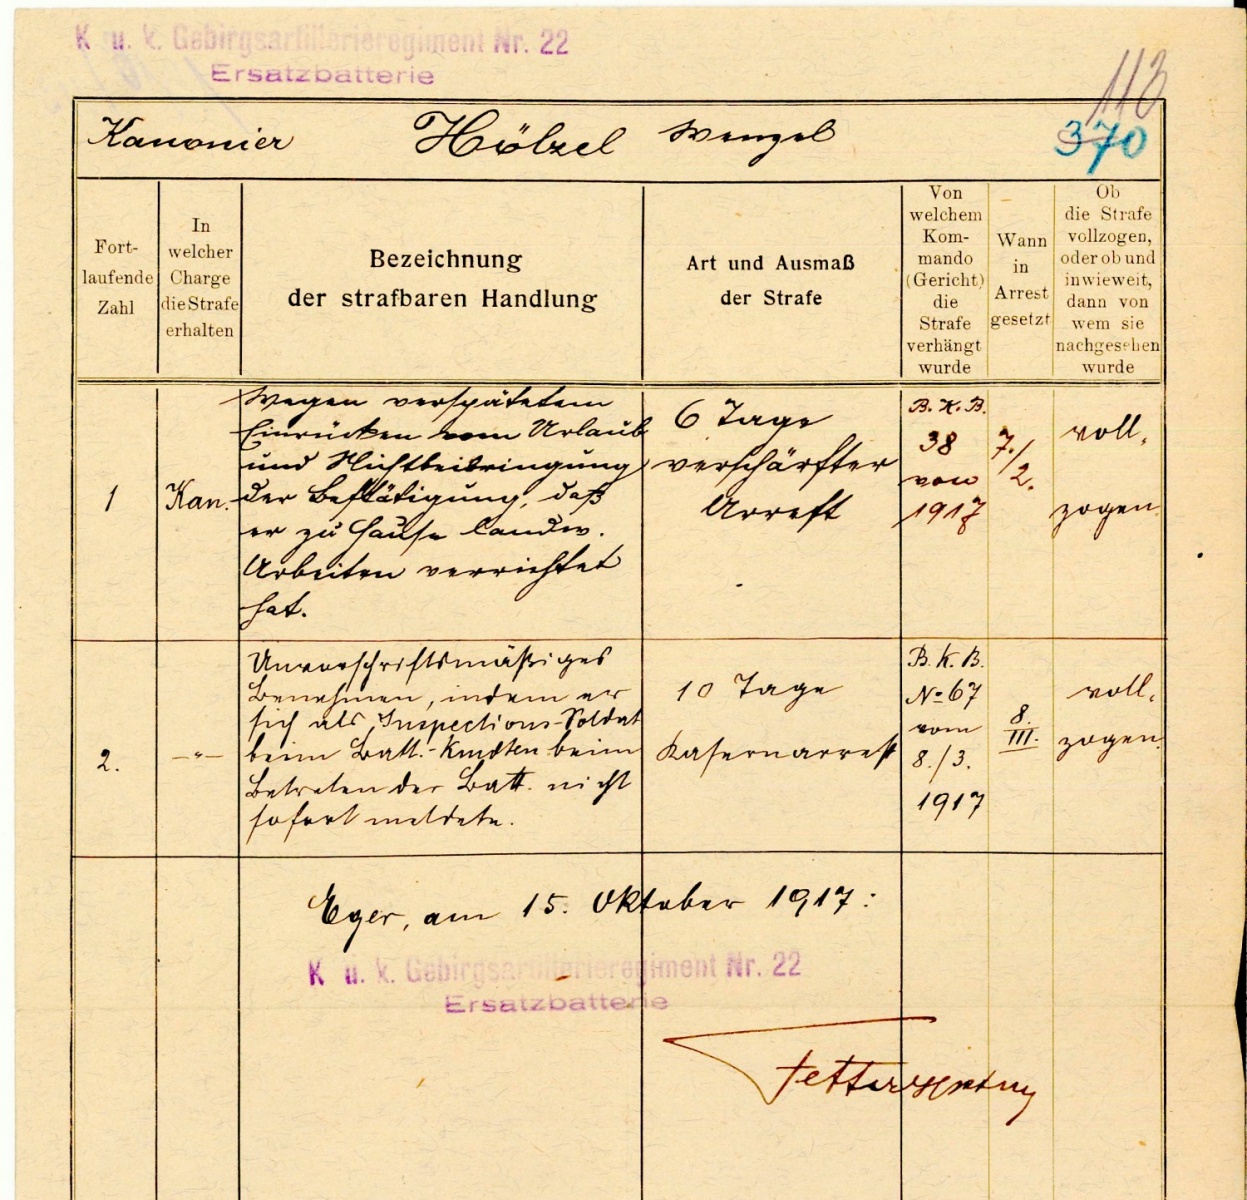 K u. k. Gebirgsartillerieregiment Nr. 22
Ersatzbatterie
113
Kanonier Hölzel Wenzel 370
Fort-
laufende
Zahl
In
welcher
Charge
die Strafe
erhalten
Bezeichnung
der strafbaren Handlung
Art und Ausmaß
der Strafe
Von
welchem
Kom-
mando
(Gericht)
die
Strafe
verhängt
wurde
Wann
in
Arrest
gesetzt
Ob
die Strafe
vollzogen,
oder ob und
inwieweit,
dann von
wem sie
nachgesehen
wurde
1
Kan.
Wegen verspätetem
Einrücken vom Urlaub
und Nichtbeibringung
der Bestätigung, daß
er zu Hause landw.
Arbeiten verrichtet
hat.
6 Tage
verschärfter
Arrest
B. K. B.
38
vom
1917
7./2.
voll,
zogen.
2.
—"—
Unvorschriftsmäßiges
Benehmen, indem er
sich als Inspections-Soldat
beim Batt.-Kmdten beim
Betreten der Batt. nicht
sofort meldete.
10 Tage
Kasernarrest
B. K. B.
No 67
vom
8./3.
1917
8.
III.
voll,
zogen.
Eger, am 15. Oktober 1917:
K u. k. Gebirgsartillerieregiment Nr. 22
Ersatzbatterie